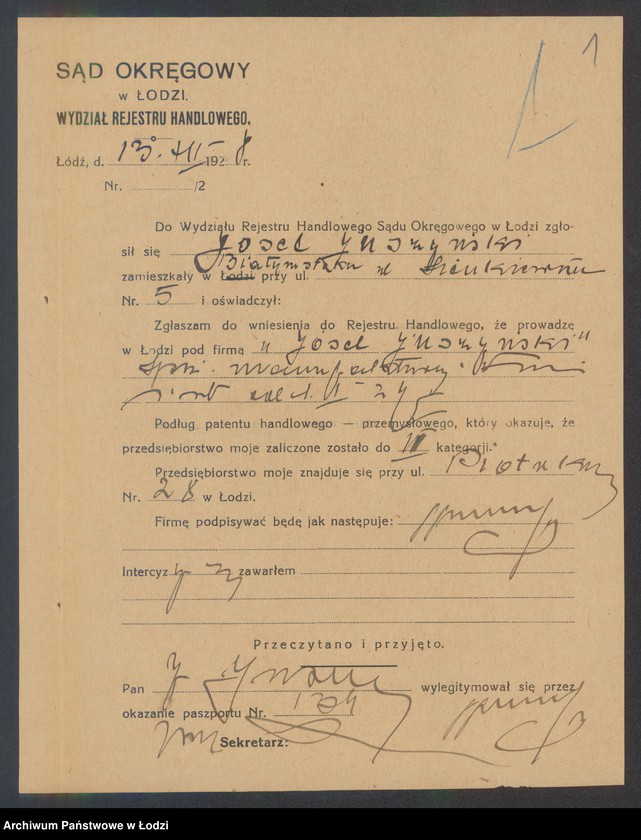 1
SĄD OKRĘGOWY
w ŁODZI.
WYDZIAŁ REJESTRU HANDLOWEGO.
Łódź, d. 13. XII 1928 r.
Nr. /2
Do Wydziału Rejestru Handlowego Sądu Okręgowego w Łodzi zgło-
sił się Josel Juszyński
Białymstoku
zamieszkały w Łodzi przy ul. Sienkiewicza
Nr. 5 i oświadczył:
Zgłaszam do wniesienia do Rejestru Handlowego, że prowadzę
w Łodzi pod firmą „Josel Juszyński"
od
Podług patentu handlowego — przemysłowego, który okazuje, że
przedsiębiorstwo moje zaliczone zostało do II kategorji.*
Przedsiębiorstwo moje znajduje się przy ul.
Nr. 28 w Łodzi.
Firmę podpisywać będę jak następuje:
Intercyz zawarłem
Przeczytano i przyjęto.
Pan J. wylegitymował się przez
okazanie paszportu Nr.
Sekretarz:
Archiwum Państwowe w Łodzi